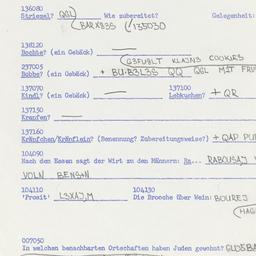 136080
Striezel? QGL Wie zubereitet? Gelegenheit:
(BARXB35 (135030
138120
Bochbe? (ein Gebäck) —
(G3FU8LT KLAJNS COOKIES
237005
Bobbe? (ein Gebäck) + BU:B3L3S QQ QGL MIT
137070 137100
Kindl? (ein Gebäck) — Lebkuchen? + QR
137130
Krapfen? —
137160
Kräpfchen/Kräpflein? (Benennung? Zubereitungsweise?) + QAP
104090
Nach dem Essen sagt der Wirt zu den Männern: Ra... RABOUSAJ
VOLN BENSÅN
104110 104130
'Prosit' L3XAJ,M Die Broche über Wein: BOUREJ
007050
In welchen benachbarten Ortschaften haben Juden gewohnt?